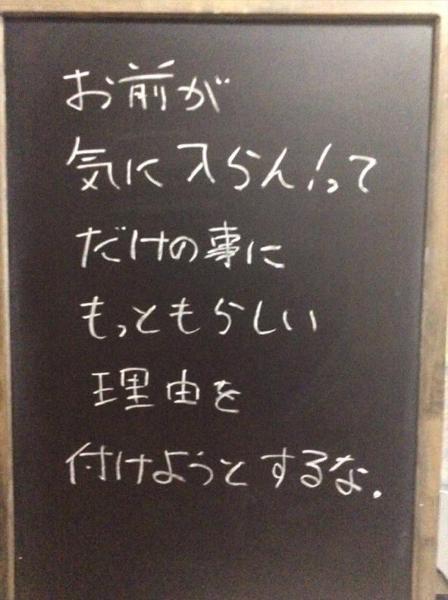 お前が
気に入らん！って
だけの事に
もっともらしい
理由を
付けようとするな．